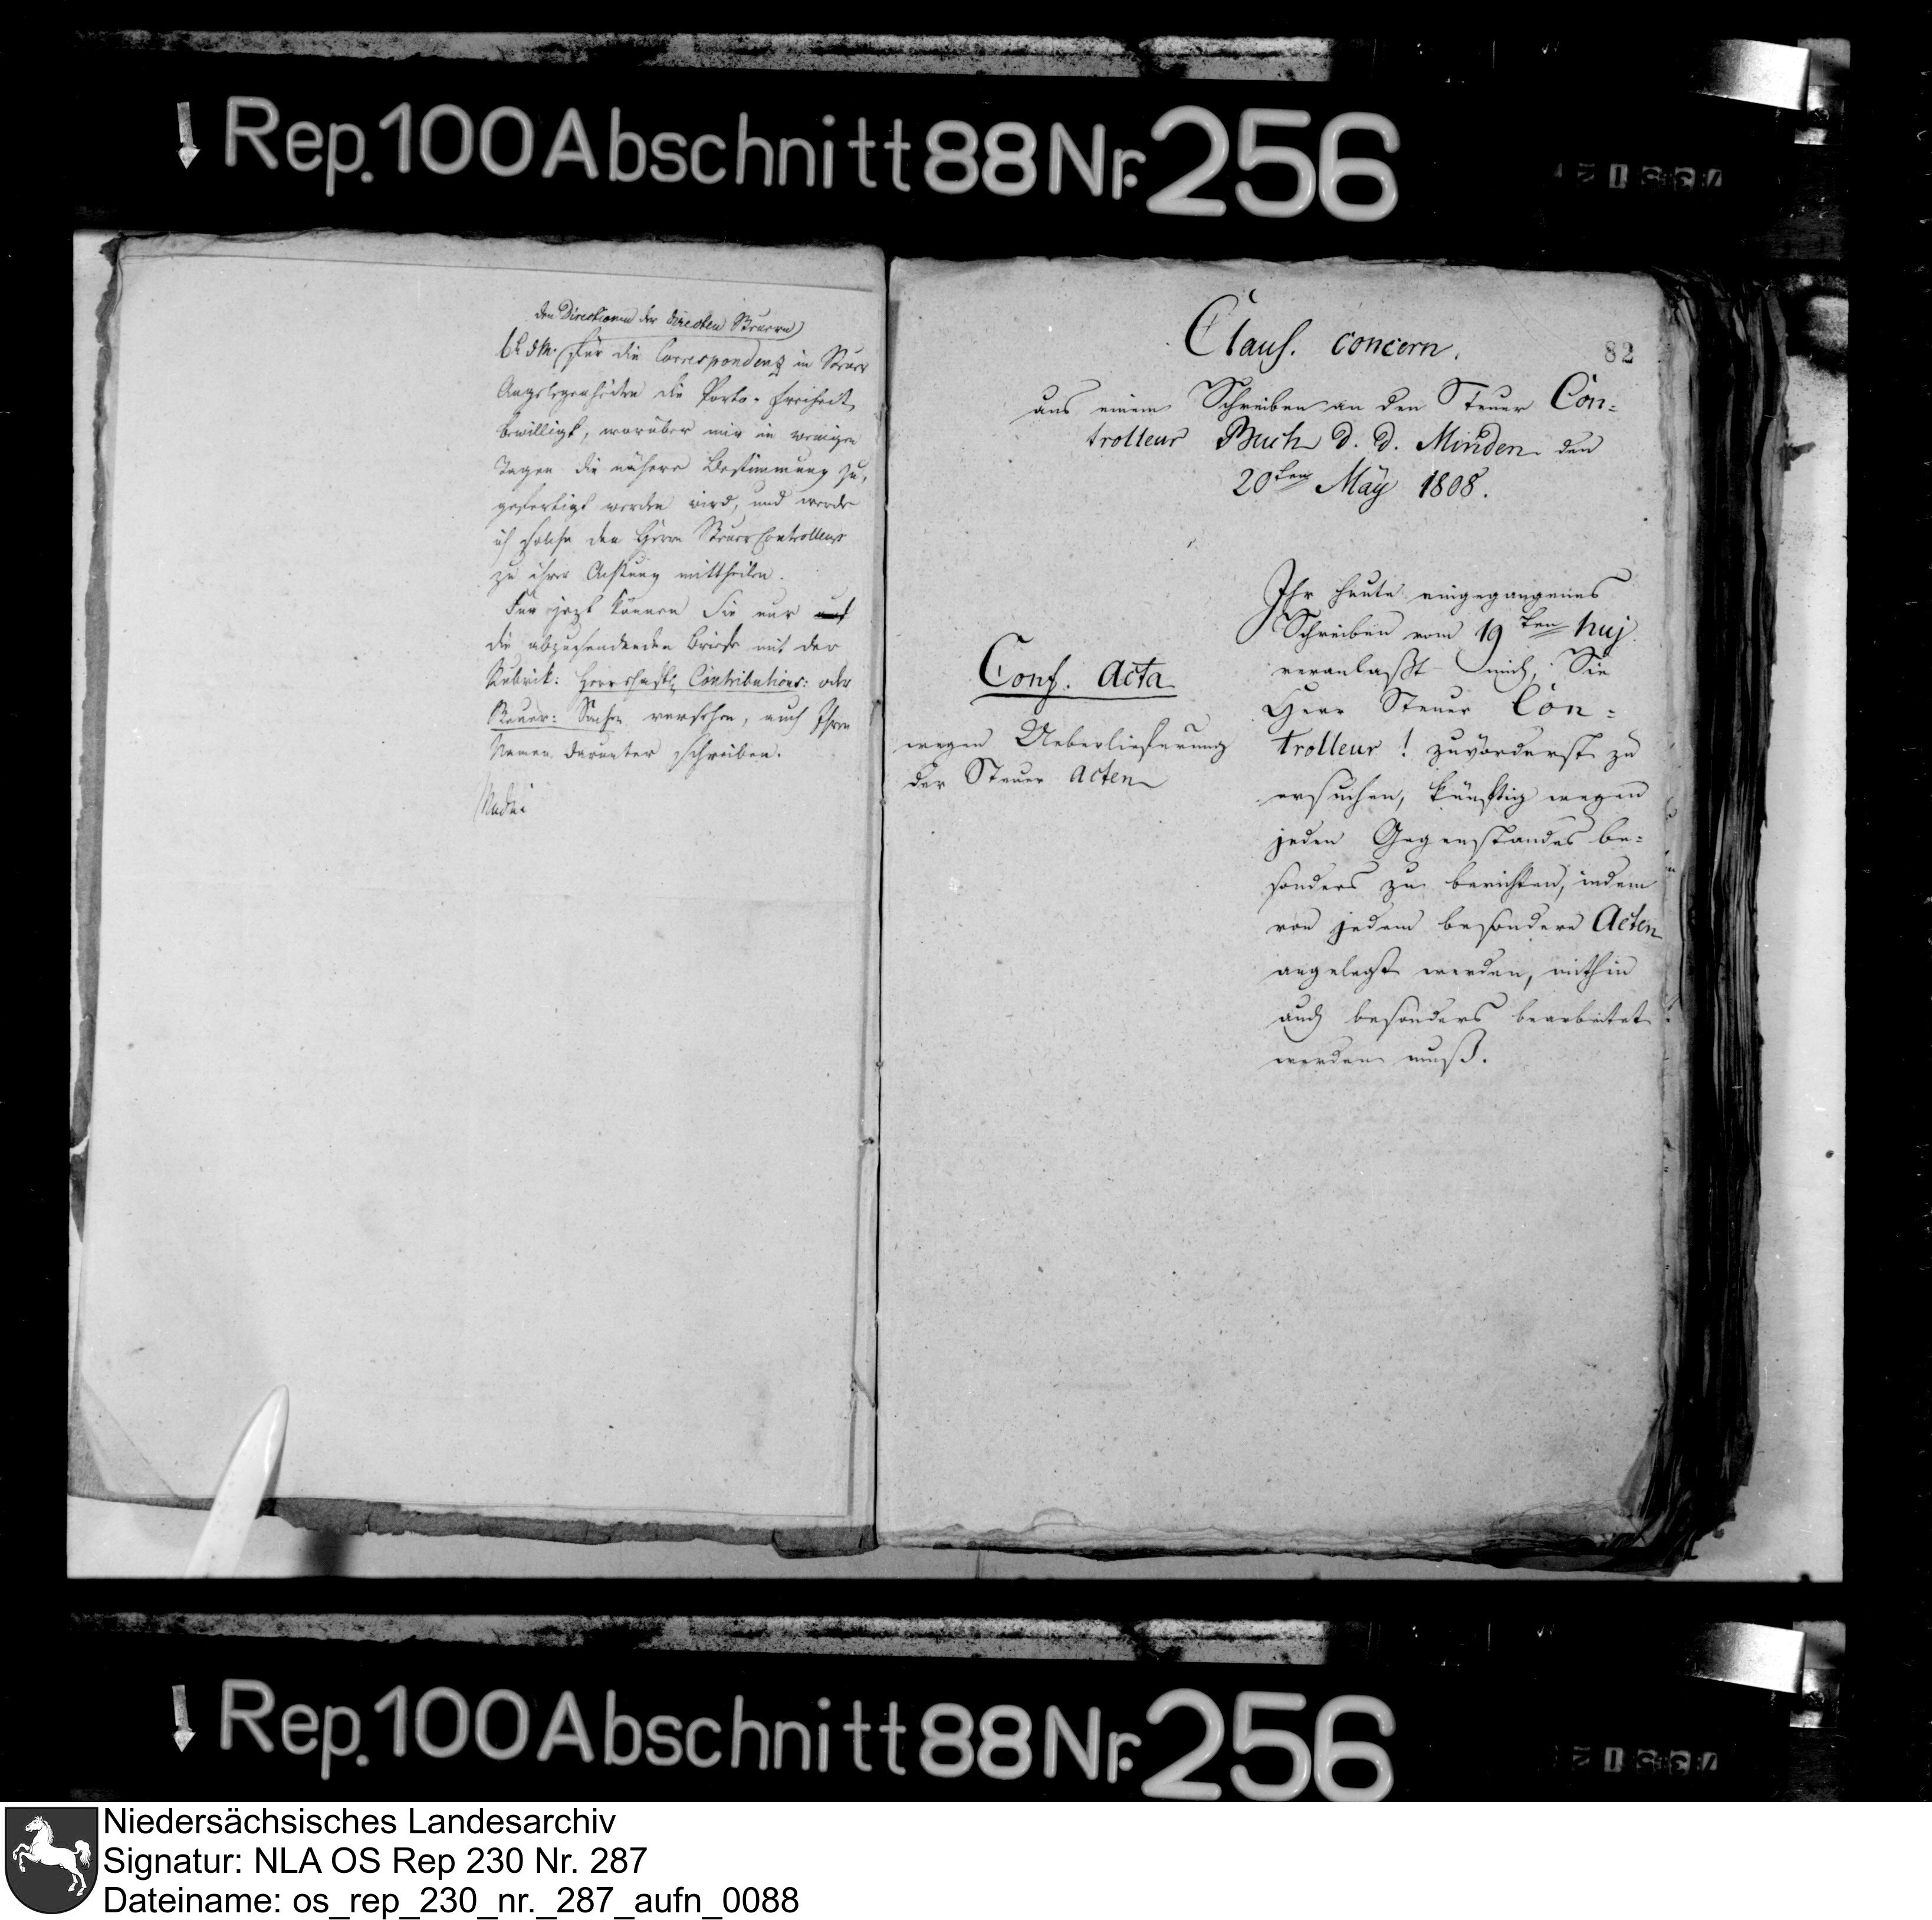 Rep. 100 Abschnitt 88 Nr. 256
den Directionen der directen Steuern
für die Correspondenz in Steuer
Angelegenheiten die Porto-Freiheit
bewilligt, worüber mir in wenigen
Tagen die nähere Bestimmung zu,
gefertigt werden wird, und werde
ich solche den Herrn Steuer Controlleurs
zu ihrer Achtung mittheilen.
Für jezt können Sie nur
die abzusendenden Briefe mit der
Rubrik: Herrschaftl. Contributions: oder
Steuer: Sachen versehen, auch Ihren
Namen darunter schreiben.
82
Claus. concern.
aus einem Schreiben an den Steuer Con=
trolleur Buch d. d. Minden den
20ten May 1808.
Conf. Acta
wegen Ueberlieferung
der Steuer Acten
Ihr heute eingegangenes
Schreiben vom 19ten huj.
veranlaßt mich, Sie
Herr Steuer Con=
trolleur! zuvörderst zu
ersuchen, künftig wegen
jeden Gegenstandes be=
sonders zu berichten, indem
von jedem besondere Acten
angelegt werden, mithin
auch besonders bearbeitet
werden muß.
Rep. 100 Abschnitt 88 Nr. 256
Niedersächsisches Landesarchiv
Signatur: NLA OS Rep 230 Nr. 287
Dateiname: os_rep_230_nr._287_aufn_0088